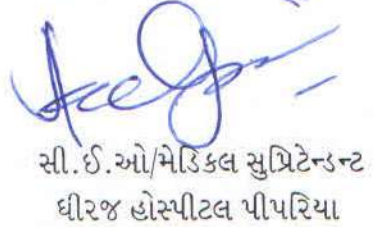 સી.ઈ.ઓ/મેડિકલ સુપ્રિટેન્ડન્ટ
ધીરજ હોસ્પીટલ પીપરિયા